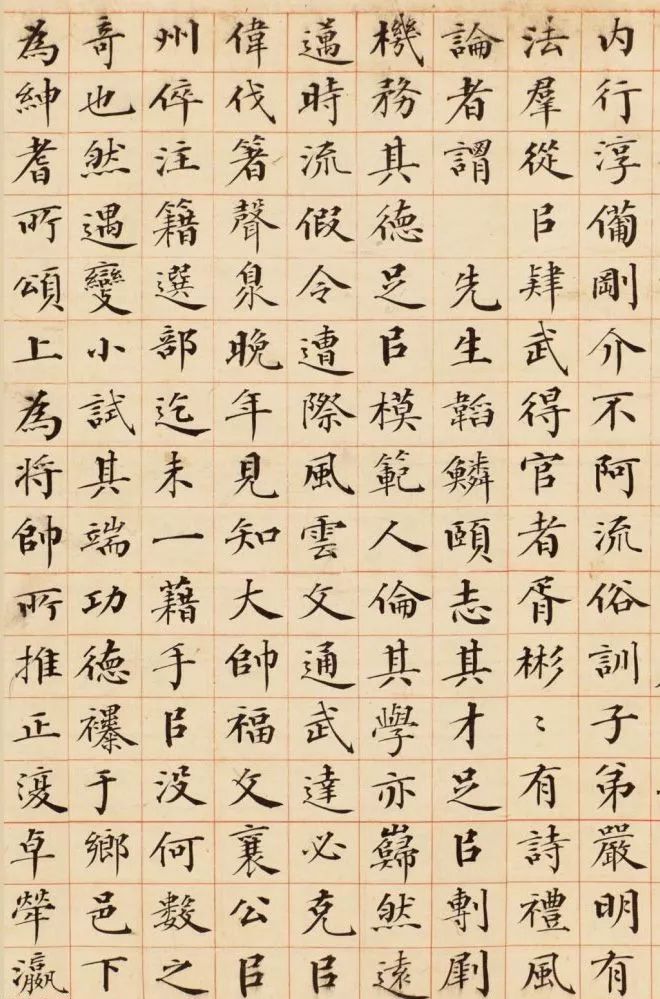 内行淳僃剛介不阿流俗訓子弟嚴明有
法羣從㠯肆武得官者胥彬〻有詩禮風
論者謂 先生韜鱗頤志其才足㠯剸劇
機務其德足㠯模範人倫其學亦巋然遠
邁時流假令遭際風雲文通武達必克㠯
偉伐箸聲臮晚年見知大帥福文襄公㠯
州倅注籍選部迄未一藉手㠯没何數之
奇也然遇變小試其端功德襮于鄉邑下
為紳耆所頌上為將帥所推正復卓犖瀛